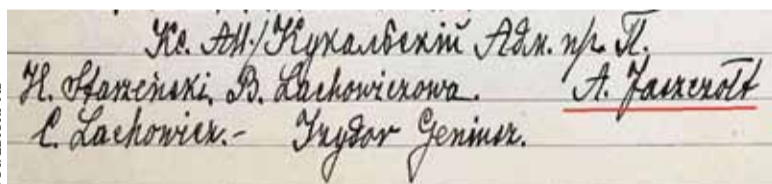 Кс. АМ./Кукальскій Адм. пр. П.
H. Starzeński, B. Lachowiczowa. A. Jaszczołt
C. Lachowicz.- Izydor Geniusz.